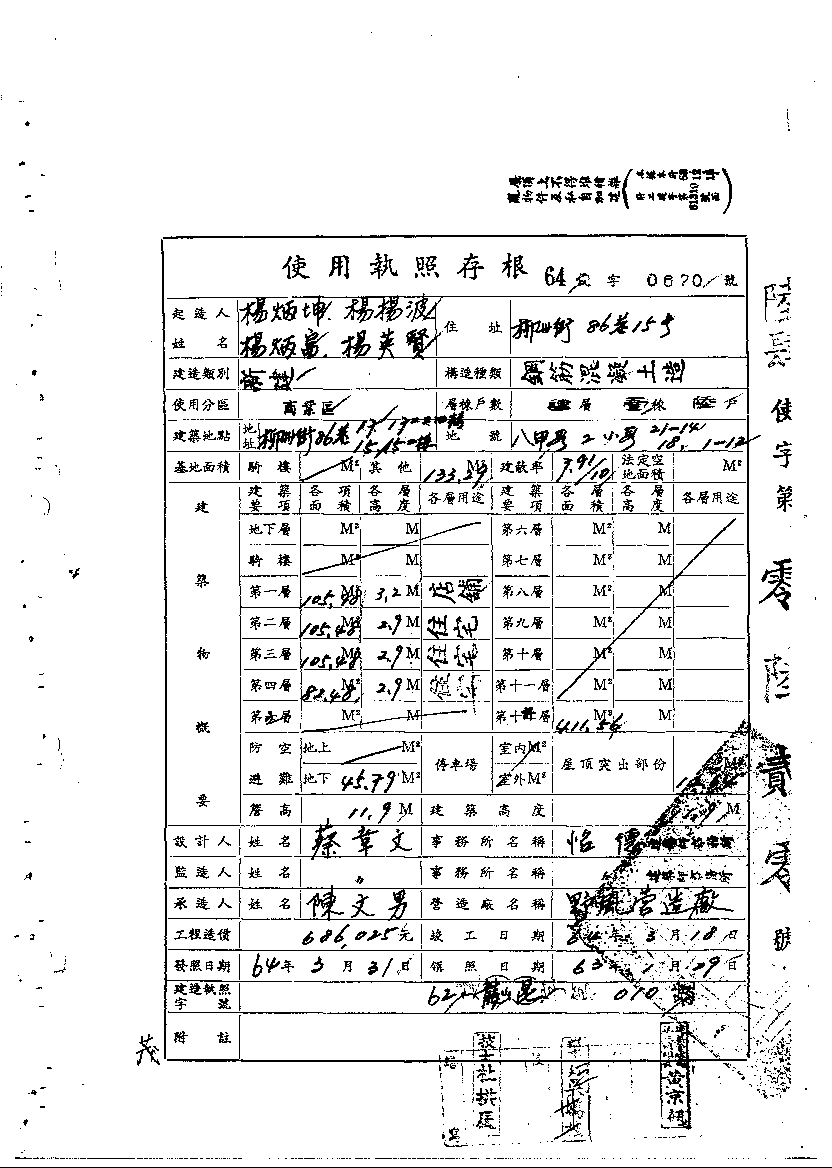 使用執照存根 64 使字 0620 號
起造人姓名 楊炳坤、楊楊波 楊炳富、楊英賢 住址 柳州街86巷15号
建造類別 新建 構造種類 鋼筋混凝土造
使用分區 商業區 層棟戶數 層 壹棟 陸戶
建築地點 地址 柳州街86巷 地號 八甲段2小段 21-14 18、1-12
基地面積 騎樓 M² 其他 133.29 M² 建蔽率 7.91/10 法定空地面積 M²
建築物概要 建築要項 各項面積 各層高度 各層用途 建築要項 各項面積 各層高度 各層用途
地下層 M² M 第六層 M² M
騎樓 M² M 第七層 M² M
第一層 105.48 M² 3.2 M 店鋪 第八層 M² M
第二層 105.48 M² 2.9 M 住宅 第九層 M² M
第三層 105.48 M² 2.9 M 住宅 第十層 M² M
第四層 82.48 M² 2.9 M 住宅 第十一層 M² M
第五層 M² M 第十 層 411.56 M²
防空避難 地上 M² 停車場 室內 M² 屋頂突出部份 M²
地下 45.79 M² 室外 M²
簷高 11.9 M 建築高度 M
設計人 姓名 蔡章文 事務所名稱
監造人 姓名 〃 事務所名稱
承造人 姓名 陳文男 營造廠名稱 營造廠
工程造價 686,025元 竣工日期 64年3月18日
發照日期 64年3月31日 領照日期 63年1月29日
建造執照字號 62 010
附註
茂
陸 使字第零陸貳零號